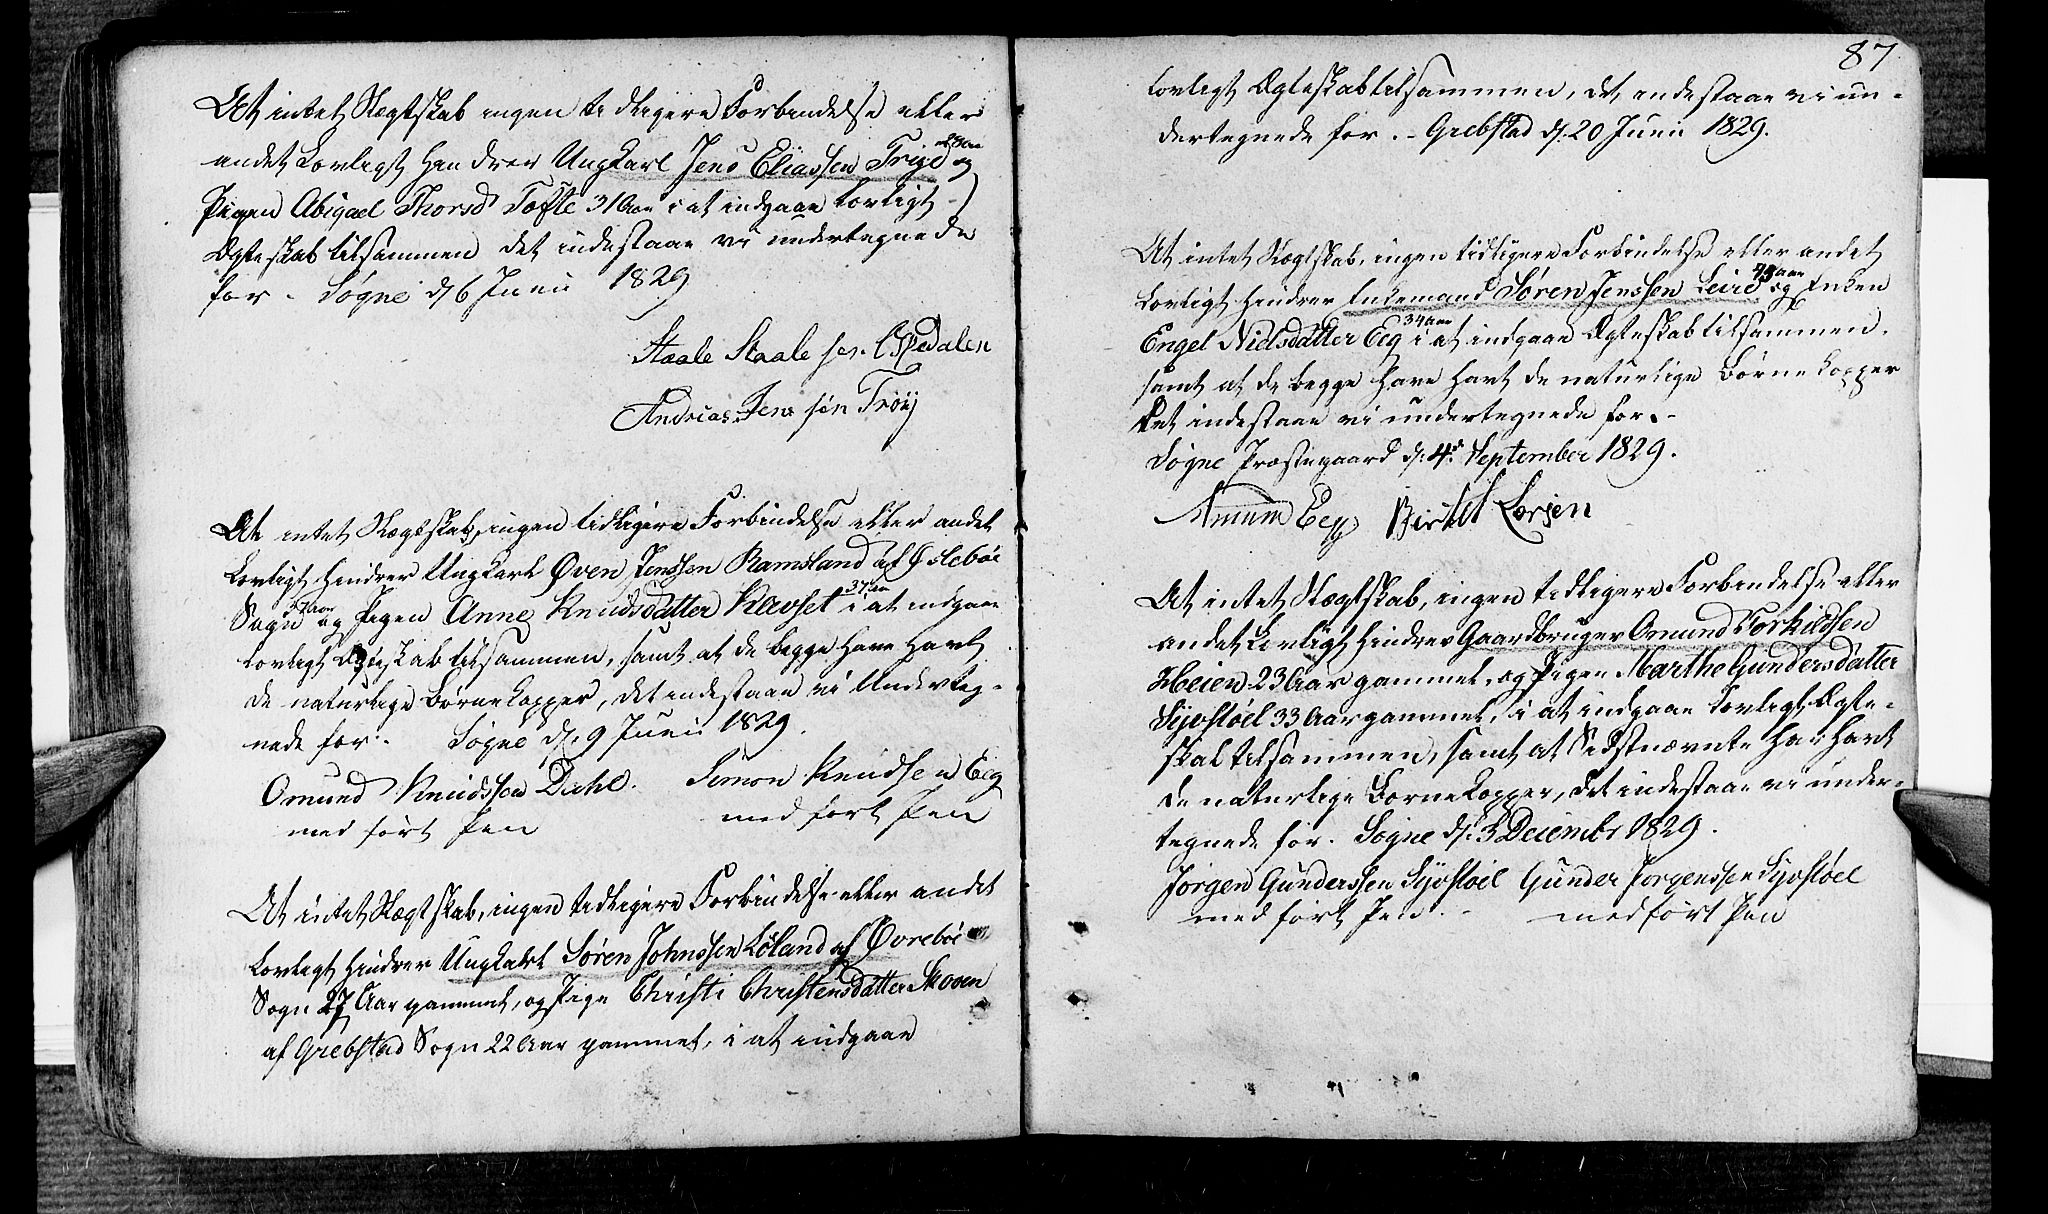 At intet Slægtskab ingen tidligere Forbindelse eller
andet Lovligt Hindrer Ungkarl Jens Eliassen Trye og
Pigen Abigael Thorsd Tofte 31 Aar i at indgaae Lovligt
Ægteskab tilsammen det indestaae vi undertegnede
for. Søgne d. 6 Junii 1829
Staale Staale sen. Espedalen
Andreas Jens sön Tröÿ
At intet Slægtskab, ingen tidligere Forbindelse eller andet
Lovligt Hindrer Ungkarl Øven Jenssen Ramsland af Øslebøe
Sogn 37 aar og Pigen Anne Knudsdatter Klevset 37 aar i at indgaae
Lovligt Ægteskab tilsammen, samt at de begge Have Havt
de naturlige Børnekopper, det indestaae vi Underteg-
nede for. Søgne d. 9 Junii 1829.
Omund Knudssen Dahl. Simon Knudsen Eeg
med ført Pen med ført Pen
At intet Slægtskab, ingen tidligere Forbindelse eller andet
Lovligt Hindrer Ungkarl Søren Johnssen Løland af Øvrebøe
Sogn 27 Aar gammel, og Pige Christi Christensdatter Skoven
af Grebstad Sogn 22 Aar gammel, i at indgaae
87
lovligt Ægteskab tilsammen, det indestaae vi un-
dertegnede for. - Grebstad d. 20 Junii 1829.
At intet Slægtskab, ingen tidligere Forbindelse eller andet
Lovligt Hindrer Enkemand Søren Jenssen Leire aar og Enken
Engel Nielsdatter Eeg 34 aar i at indgaae Ægteskab tilsammen.
samt at de begge Have Havt de naturlige Børnekopper
Det indestaae vi undertegnede for. -
Søgne Præstegaard d. 4de September 1829.
Amun Eeg Birtel Lorsen
At intet Slægtskab, ingen tidligere Forbindelse eller
andet Lovligt Hindrer Gaardbruger Omund Torkildsen
Heien 23 Aar gammel, og Pigen Marthe Gundersdatter
Syvstøel 33 Aar gammel, i at indgaae Lovligt Ægte-
skab tilsammen, samt at Sidstnævnte Har Havt
de naturlige Børnekopper, det indestaae vi under-
tegnede for. Søgne d. 3 Decembr 1829.
Jørgen Gunderssen Syvstøel Gunder Jørgenssen Syvstøel
med ført Pen. - med ført Pen